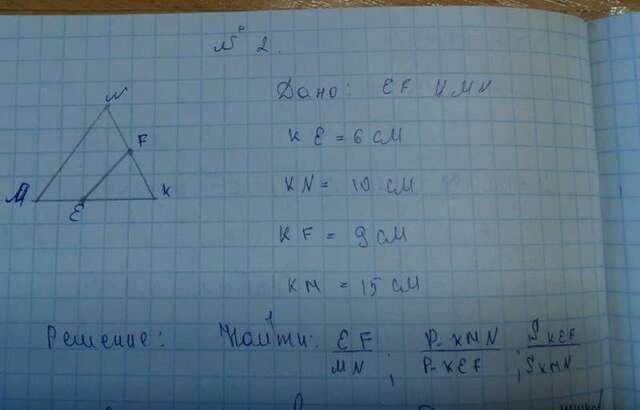 № 2.
N
F
M
E
K
Дано: EF И MN
KE = 6 см
KN = 10 см
KF = 9 см
KM = 15 см
Решение: Найти: EF/MN ; P-KMN/P-KEF ; SKEF/SKMN